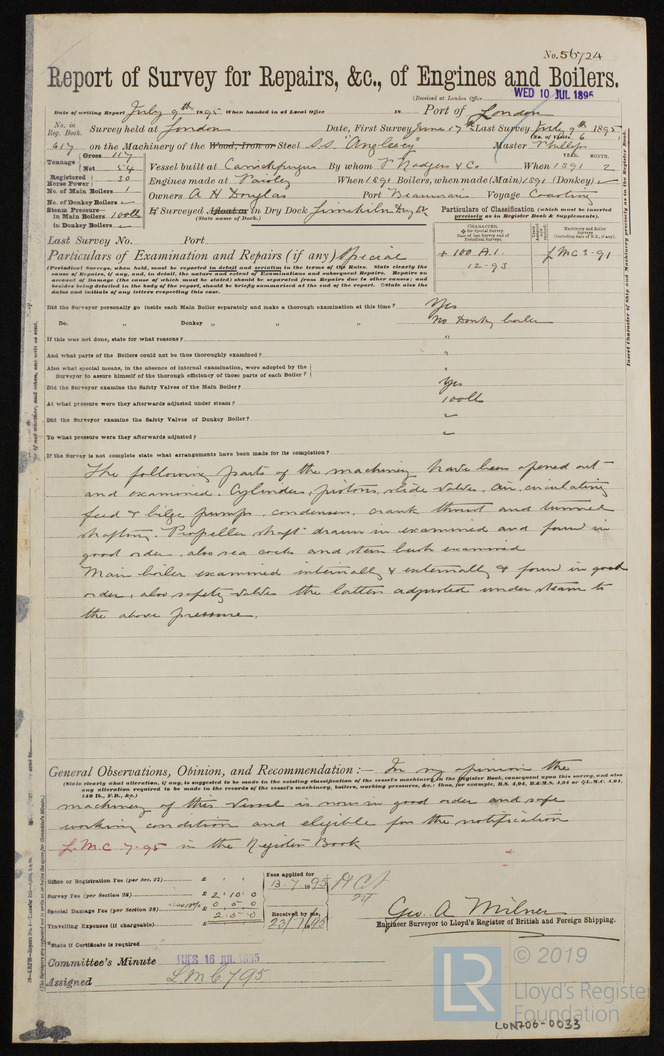 No. 56724
Report of Survey for Repairs, &c., of Engines and Boilers.
(Received at London Office WED 10 JUL 1895
Date of writing Report July 9th 1895 When handed in at Local Office 18 Port of London
No. in Reg. Book. Survey held at London Date, First Survey June 17th Last Survey July 9th 1895
(No. of Visits 6
617 on the Machinery of the Wood, Iron or Steel S.S. "Anglesey" Master Phillips
Tonnage Gross 117 Net 54 Vessel built at Carrickfergus By whom P. Rodgers & Co When 1891 2
YEAR. MONTH.
Registered Horse Power 30 Engines made at Paisley When 1891 Boilers, when made (Main) 1891 (Donkey) –
No. of Main Boilers 1
No. of Donkey Boilers – Owners A H Douglas Port Voyage Coasting
Steam Pressure in Main Boilers 100 lb If Surveyed Afloat or in Dry Dock Limekiln Dry Dk
in Donkey Boilers – (State name of Dock.)
Last Survey No. Port
Particulars of Classification (which must be inserted precisely as in Register Book & Supplements).
Particulars of Examination and Repairs (if any) Special
CHARACTER.
+ 100 A.1. £MC 3-91
12-93
(Periodical Surveys, when held, must be reported in detail and seriatim in the terms of the Rules. State clearly the
cause of Repairs, if any, and, in detail, the nature and extent of Examinations and subsequent Repairs. Repairs on
account of Damage (the cause of which must be stated) should be separated from Repairs due to other causes; and
besides being detailed in the body of the report, should be briefly summarised at the end of the report. State also the
dates and initials of any letters respecting this case.
Did the Surveyor personally go inside each Main Boiler separately and make a thorough examination at this time? Yes
Do. " Donkey " " " No Donkey boiler
If this was not done, state for what reasons? "
And what parts of the Boilers could not be thus thoroughly examined? "
Also what special means, in the absence of internal examination, were adopted by the
Surveyor to assure himself of the thorough efficiency of those parts of each Boiler? "
Did the Surveyor examine the Safety Valves of the Main Boiler? Yes
At what pressure were they afterwards adjusted under steam? 100 lb
Did the Surveyor examine the Safety Valves of Donkey Boiler? –
To what pressure were they afterwards adjusted? –
If the Survey is not complete state what arrangements have been made for its completion?
The following parts of the machinery have been opened out
and examined. Cylinders, pistons, slide valves, air, circulating
feed & bilge pumps, condenser, crank thrust and tunnel
shafting. Propeller shaft drawn in examined and found in
good order, also sea cocks and stern bush examined
Main boiler examined internally & externally & found in good
order, also safety valves the latter adjusted under steam to
the above pressure.
General Observations, Opinion, and Recommendation:— In my opinion the
(State clearly what alteration, if any, is suggested to be made in the existing classification of the vessel's machinery in the Register Book, consequent upon this survey, and also
any alteration required to be made in the records of the vessel's machinery, boilers, working pressures, &c.: thus, for example, B.S. 4,94, B.&M.S. 4,94 or L.M.C. 4,94,
140 lb., F.D., &c.)
machinery of this vessel is now in good order and safe
working condition and eligible for the notification
£.M.C. 7.95 in the Register Book
Office or Registration Fee (per Sec. 27)... £ : : Fees applied for
Survey Fee (per Section 28)... £ 2 : 10 : 0 13-7-1895
Special Damage Fee (per Section 28)... £ 0 : 5 : 0
2 . 5 . 0 Received by me,
Travelling Expenses (if chargeable)... £ : : 23/7/1895
Geo. A. Milner
Engineer Surveyor to Lloyd's Register of British and Foreign Shipping.
State if Certificate is required
Committee's Minute TUES 16 JUL 1895
Assigned LMC 7 95
LR
© 2019
Lloyd's Register
Foundation
LON706-0033